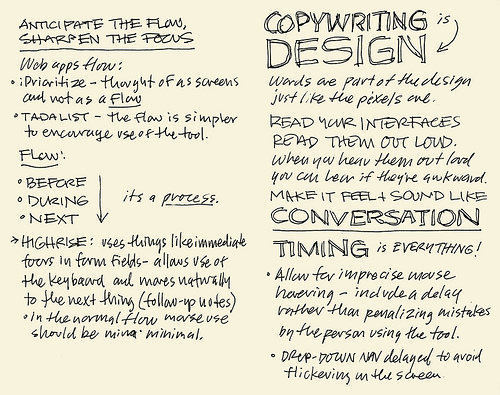 ANTICIPATE THE FLOW,
SHARPEN THE FOCUS
Web apps flow:
• iPrioritize - thought of as screens
and not as a flow
• TADALIST - the flow is simpler
to encourage use of the tool.
Flow:
• BEFORE
• DURING
• NEXT
it's a process.
→ HIGHRISE: uses things like immediate
focus in form fields - allows use of
the keyboard and moves naturally
to the next thing (follow-up notes)
• In the normal flow mouse use
should be minimal.
COPYWRITING is
DESIGN
Words are part of the design
just like the pixels are.
READ YOUR INTERFACES
READ THEM OUT LOUD.
When you hear them out loud
you can hear if they're awkward.
MAKE IT FEEL + SOUND LIKE
CONVERSATION
TIMING is EVERYTHING!
• Allow for imprecise mouse
hovering - include a delay
rather than penalizing mistakes
by the person using the tool.
• DROP-DOWN NAV delayed to avoid
flickering in the screen.